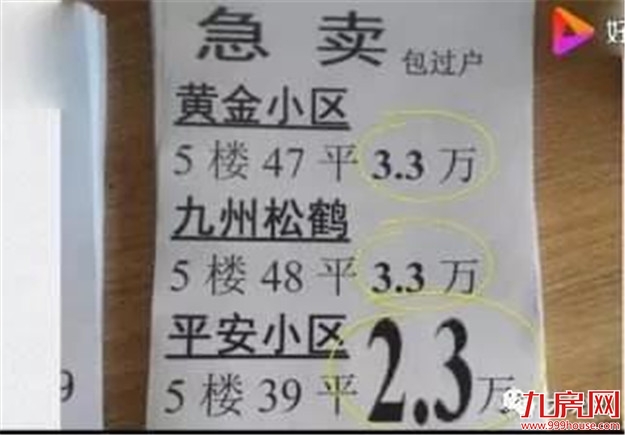 急卖 包过户
黄金小区
5楼47平3.3万
九州松鹤
5楼48平3.3万
平安小区
5楼39平2.3万
9
好
九房网
www.999house.com